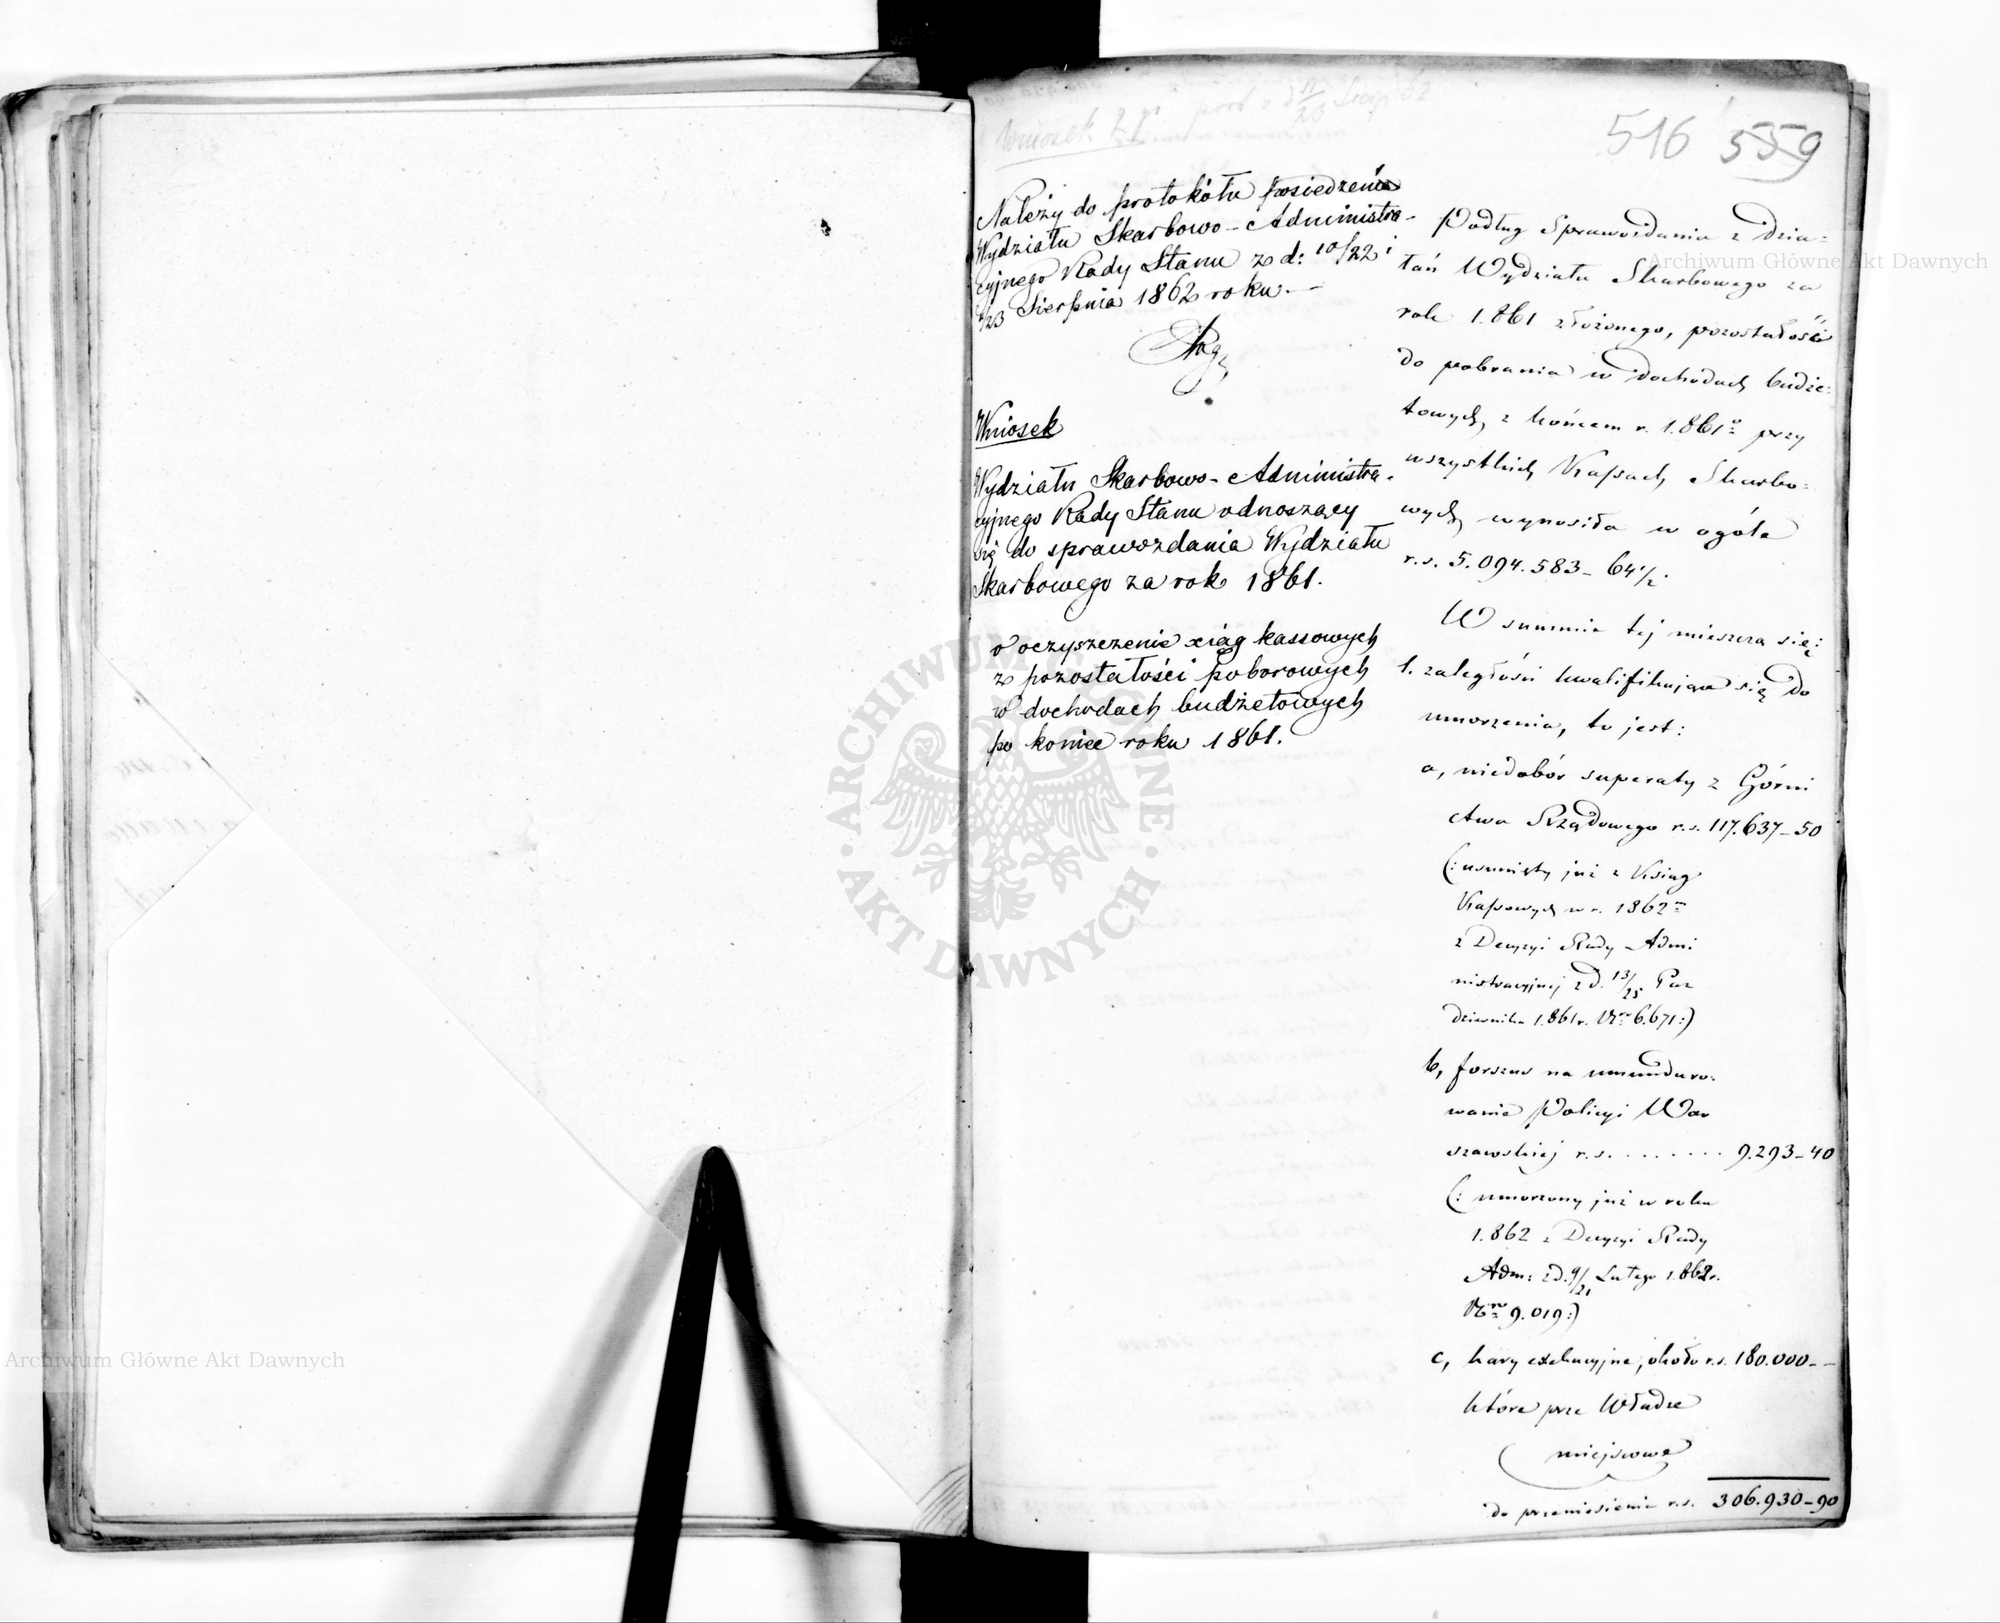 Wniosek 2gi
516 559
Należy do protokółu posiedzenia
Wydziału Skarbowo-Administra-
cyjnego Rady Stanu z d: 10/22 i
11/23 Sierpnia 1862 roku.—
Wniosek
Wydziału Skarbowo-Administra-
cyjnego Rady Stanu odnoszący
się do sprawozdania Wydziału
Skarbowego za rok 1861.
o oczyszczenie xiąg kassowych
z pozostałości poborowych
w dochodach budżetowych
po koniec roku 1861.
Podług Sprawozdania z dzia-
łań Wydziału Skarbowego za
rok 1.861 złożonego, pozostałość
do pobrania w dochodach budże-
towych, z końcem r. 1.861o przy
wszystkich Kassach Skarbo-
wych wynosiła w ogóle
r.s. 5.094.583_ 64 1/2.
W summie tej mieszczą się:
1. zaległości kwalifikujące się do
umorzenia, to jest:
a, niedobór superaty z Górni
ctwa Rządowego r.s. 117.637_50
(: usunięty już z Ksiąg
Kassowych w r. 1862m
z Decyzyi Rady Admi
nistracyjnej z d. 13/25 Paz
dziernika 1.861 r. Nro 6.671:)
b, forszus na umunduro-
wanie Policyi War
szawskiej r.s. . . . . . . . 9.293_40
(: umorzony już w roku
1.862 z Decyzyi Rady
Adm: z d. 9/21 Lutego 1.862 r.
Nro 9.019:)
c, kary exekucyjne, około r.s. 180.000_ _
które prze Władze
miejscowe
do przeniesienia r.s. 306.930_90
ARCHIWUM GŁÓWNE AKT DAWNYCH
Archiwum Główne Akt Dawnych
Archiwum Główne Akt Dawnych